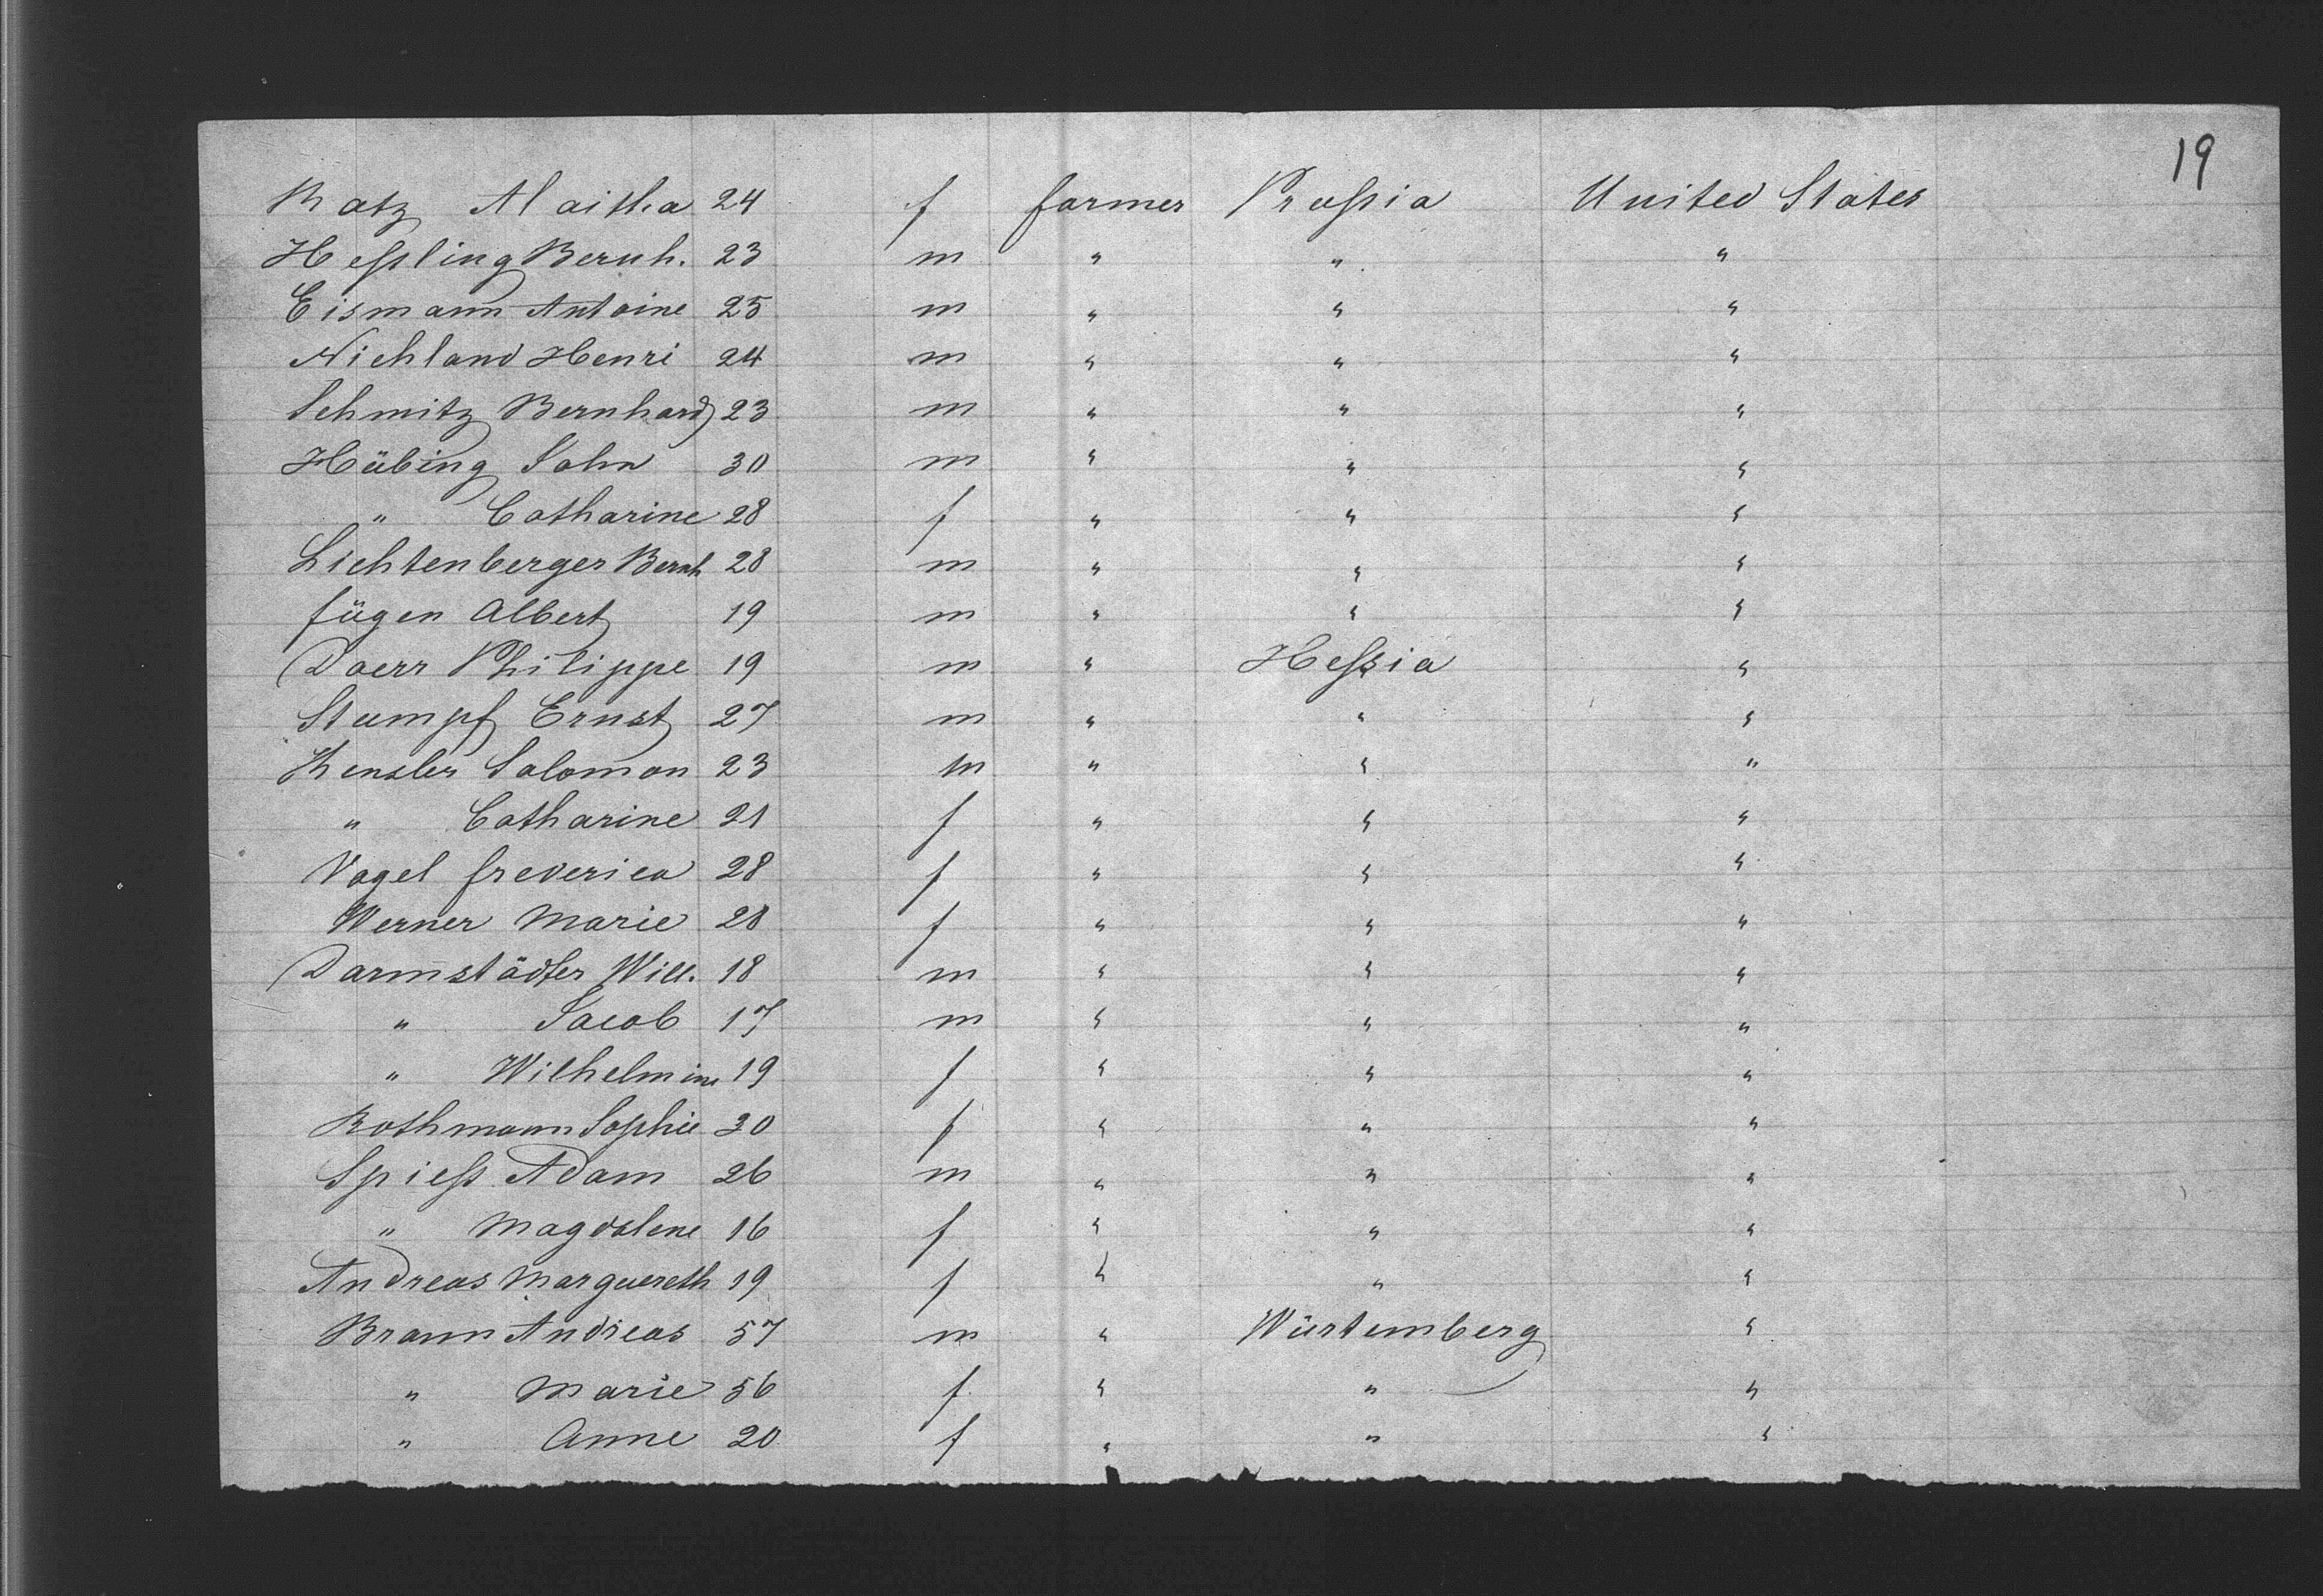 19
Ratz Alaitha 24 f farmer Prußia United States
Heßling Bernh. 23 m " " "
Eismann Antoine 25 m " " "
Niehland Henri 24 m " " "
Schmitz Bernhard 23 m " " "
Hübing John 30 m " " "
" Catharine 28 f " " "
Lichtenberger Bernh 28 m " " "
fügen Albert 19 m " " "
Doerr Philippe 19 m " Heßia "
Stumpf Ernst 27 m " " "
Kensler Salomon 23 m " " "
" Catharine 21 f " " "
Vogel frederica 28 f " " "
Werner Marie 28 f " " "
Darmstädter Will. 18 m " " "
" Jacob 17 m " " "
" Wilhelmine 19 f " " "
Rothmann Sophie 20 f " " "
Spieß Adam 26 m " " "
" Magdalene 16 f " " "
Andreas Marguereth 19 f " " "
Braun Andreas 57 m " Würtemberg "
" Marie 56 f " " "
" Anne 20 f " " "